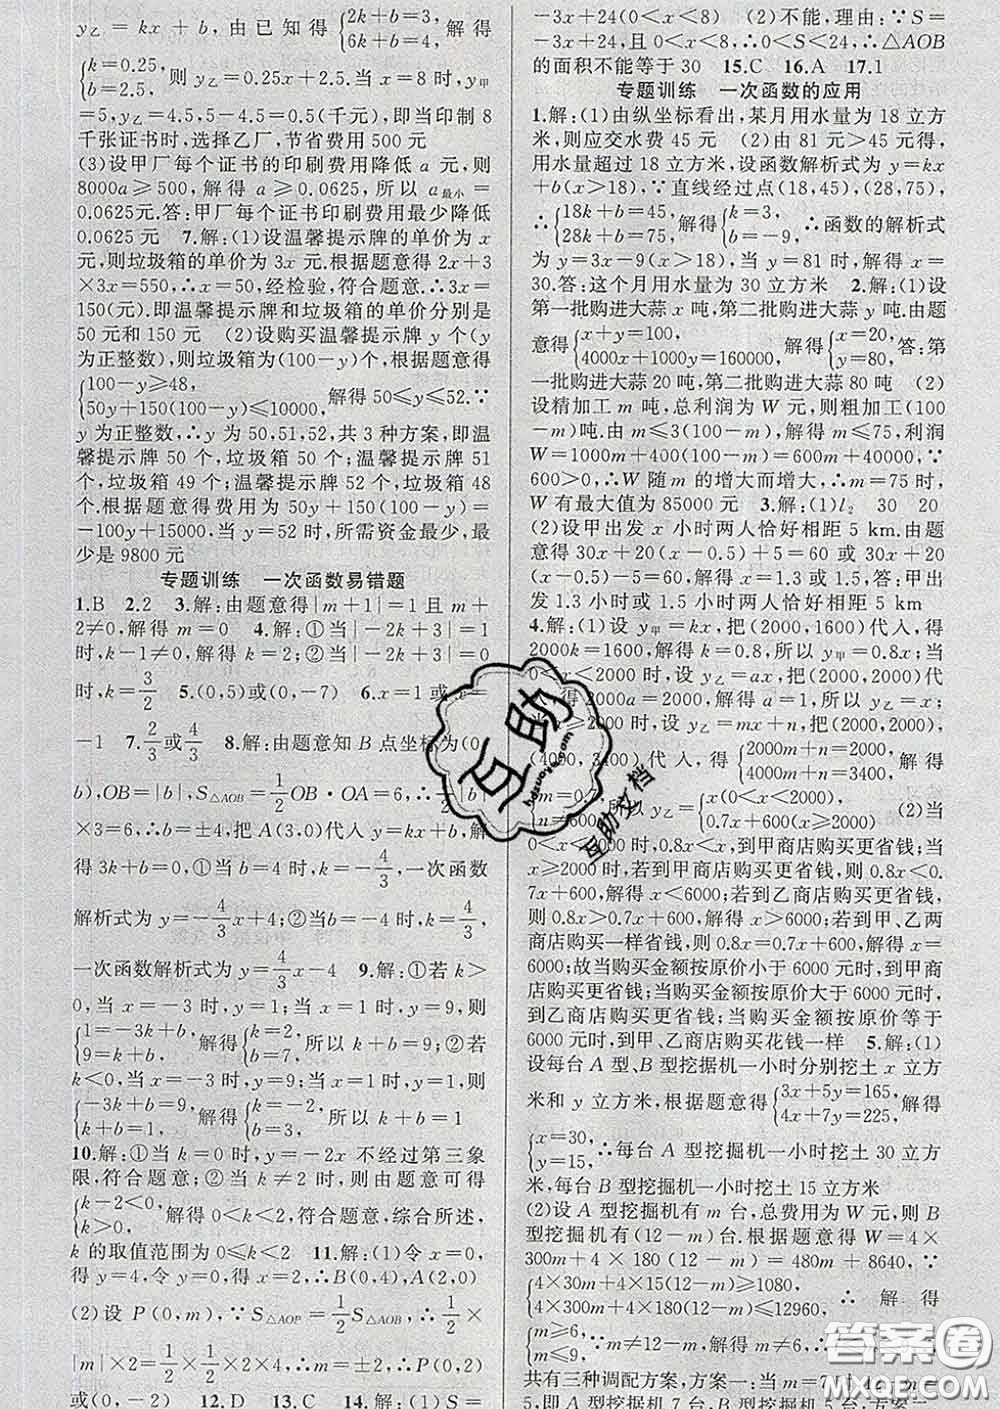 y乙＝kx＋b，由已知得{2k＋b＝3，6k＋b＝4，解得
{k＝0.25，b＝2.5，则 y乙＝0.25x＋2.5.当 x＝8 时，y甲
＝5，y乙＝4.5，5－4.5＝0.5(千元)，即当印制 8
千张证书时，选择乙厂，节省费用 500 元
(3)设甲厂每个证书的印刷费用降低 a 元，则
8000a≥500，解得 a≥0.0625，所以 a最小＝
0.0625元.答：甲厂每个证书印刷费用最少降低
0.0625 元　7.解：(1)设温馨提示牌的单价为 x
元，则垃圾箱的单价为 3x 元.根据题意得 2x＋3
×3x＝550，∴x＝50，经检验，符合题意，∴3x＝
150(元).即温馨提示牌和垃圾箱的单价分别是
50 元和 150 元　(2)设购买温馨提示牌 y 个(y
为正整数)，则垃圾箱为(100－y)个，根据题意得
{100－y≥48，50y＋150(100－y)≤10000，解得 50≤y≤52.∵
y 为正整数，∴y 为 50，51，52，共 3 种方案，即温
馨提示牌 50 个，垃圾箱 50 个；温馨提示牌 51
个，垃圾箱 49 个；温馨提示牌 52 个，垃圾箱 48
个.根据题意得费用为 50y＋150(100－y)＝
－100y＋15000，当 y＝52 时，所需资金最少，最
少是 9800 元
专题训练　一次函数易错题
1.B　2.2　3.解：由题意得|m＋1|＝1 且 m＋
2≠0，解得 m＝0　4.解：①当|－2k＋3|＝1
时，k－1≠0，解得 k＝2；②当|－2k＋3|＝0
时，k＝3/2　5.(0，5)或(0，－7)　6.x＝1 或 x＝
－1　7.2/3或4/3　8.解：由题意知 B 点坐标为(0，
b)，OB＝|b|，S△AOB＝1/2OB·OA＝6，∴1/2|b|
×3＝6，∴b＝±4，把 A(3，0)代入 y＝kx＋b，解
得 3k＋b＝0；①当 b＝4 时，k＝－4/3，一次函数
解析式为 y＝－4/3x＋4；②当b＝－4 时，k＝4/3，
一次函数解析式为 y＝4/3x－4　9.解：①若 k＞
0，当 x＝－3 时，y＝1；当 x＝1 时，y＝9，则
{1＝－3k＋b，9＝k＋b，解得{k＝2，b＝7，所以 k＋b＝9；②若
k＜0，当 x＝－3 时，y＝9；当 x＝1 时，y＝1，则
{－3k＋b＝9，k＋b＝1，解得{k＝－2，b＝3，所以 k＋b＝1
10.解：①当 k＝0 时，y＝－2x 不经过第三象
限，符合题意；②当 k≠2 时，则由题意可得
{k－2＜0，k＞0，解得 0＜k＜2，符合题意，综合所述，
k 的取值范围为 0≤k＜2　11.解：(1)令 x＝0，
得 y＝4，令 y＝0，得 x＝2，∴B(0，4)，A(2，0)
(2)设 P(0，m)，∵S△AOP＝1/2S△AOB，∴1/2×
|m|×2＝1/2×1/2×2×4，∴m＝±2，∴P(0，2)
或(0，－2)　12.D　13.C　14.解：(1)S＝
－3x＋24(0＜x＜8)　(2)不能，理由：∵S＝
－3x＋24，且 0＜x＜8，∴0＜S＜24，∴△AOB
的面积不能等于 30　15.C　16.A　17.1
专题训练　一次函数的应用
1.解：(1)由纵坐标看出，某月用水量为 18 立方
米，则应交水费 45 元　(2)由 81 元＞45 元，得
用水量超过 18 立方米，设函数解析式为 y＝kx
＋b(x＞18)，∵直线经过点(18，45)，(28，75)，
∴{18k＋b＝45，28k＋b＝75，解得{k＝3，b＝－9，∴函数的解析式
为 y＝3x－9(x＞18)，当 y＝81 时，解得 x＝
30.答：这个月用水量为 30 立方米　2.解：(1)设
第一批购进大蒜 x 吨，第二批购进大蒜 y 吨.由题
意得{x＋y＝100，4000x＋1000y＝160000，解得{x＝20，y＝80，答：第
一批购进大蒜 20 吨，第二批购进大蒜 80 吨　(2)
设精加工 m 吨，总利润为 W 元，则粗加工(100
－m)吨.由 m≤3(100－m)，解得 m≤75，利润
W＝1000m＋400(100－m)＝600m＋40000，∵
600＞0，∴W 随 m 的增大而增大，∴m＝75 时，
W 有最大值为 85000 元　3.解：(1)l2　30　20
(2)设甲出发 x 小时两人恰好相距 5 km.由题
意得 30x＋20(x－0.5)＋5＝60 或 30x＋20
(x－0.5)－5＝60，解得 x＝1.3 或 1.5，答：甲出
发 1.3 小时或 1.5 小时两人恰好相距 5 km
4.解：(1)设 y甲＝kx，把(2000，1600)代入，得
2000k＝1600，解得 k＝0.8，所以 y甲＝0.8x；当
0＜x＜2000 时，设 y乙＝ax，把(2000，2000)代
入，得 2000a＝2000，解得 a＝1，所以 y乙＝x；
当 x≥2000 时，设 y乙＝mx＋n，把(2000，2000)，
(4000，3400)代入，得{2000m＋n＝2000，4000m＋n＝3400，解得
{m＝0.7，n＝600，所以 y乙＝{x(0＜x＜2000)，0.7x＋600(x≥2000)　(2)当
0＜x＜2000 时，0.8x＜x，到甲商店购买更省钱；当
x≥2000 时，若到甲商店购买更省钱，则 0.8x＜0.
7x＋600，解得 x＜6000；若到乙商店购买更省钱，
则 0.8x＞0.7x＋600，解得 x＞6000；若到甲、乙两
商店购买一样省钱，则 0.8x＝0.7x＋600，解得 x＝
6000；故当购买金额按原价小于 6000 元时，到甲商
店购买更省钱；当购买金额按原价大于 6000 元时，
到乙商店购买更省钱；当购买金额按原价等于
6000 元时，到甲、乙商店购买花钱一样　5.解：(1)
设每台 A 型、B 型挖掘机一小时分别挖土 x 立方
米和 y 立方米，根据题意得{3x＋5y＝165，4x＋7y＝225，解得
{x＝30，y＝15，∴每台 A 型挖掘机一小时挖土 30 立方
米，每台 B 型挖掘机一小时挖土 15 立方米
(2)设 A 型挖掘机有 m 台，总费用为 W 元，则 B
型挖掘机有(12－m)台.根据题意得 W＝4×
300m＋4×180(12－m)＝480m＋8640，∵
{4×30m＋4×15(12－m)≥1080，4×300m＋4×180(12－m)≤12960，∴解得
{m≥6，m≤9，∵m≠12－m，解得 m≠6，∴
共有三种调配方案，方案一：当 m＝7 时，12－m＝
5，即 A 型挖掘机 7 台，B 型挖掘机 5
互助
hdzuoye.com
互助文档
答案圈
MXQE.COM